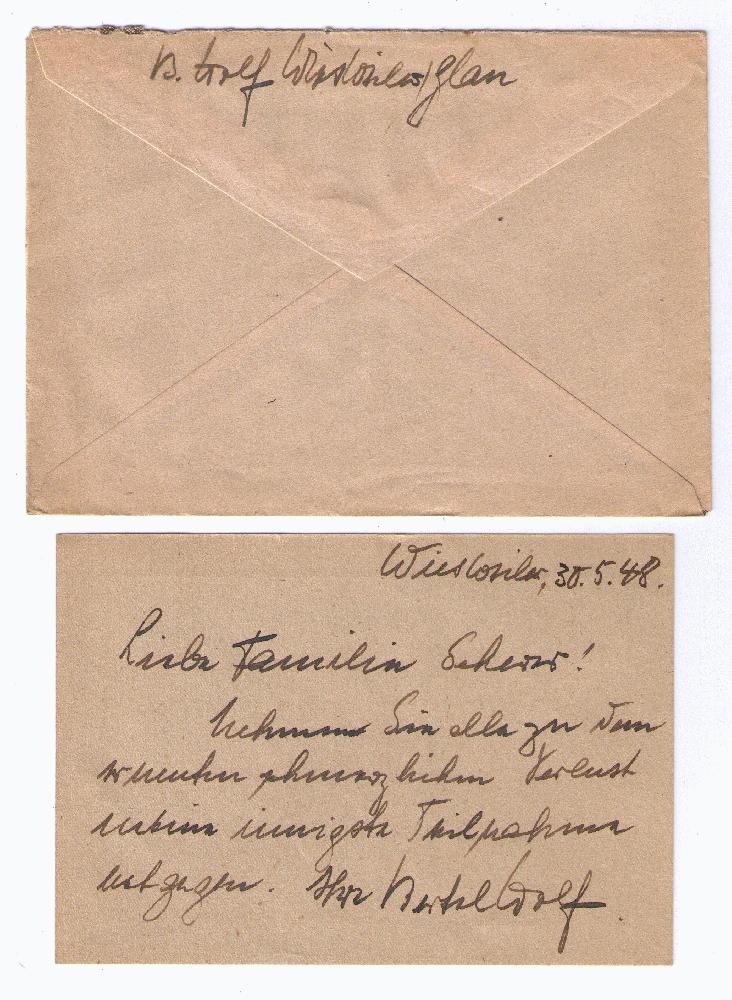 B. Wolf Wiesweiler/Glan
Wiesweiler, 30.5.48.
Liebe Familie Scherer!
Nehmen Sie alle zu dem
erneuten schmerzlichen Verlust
meine innigste Teilnahme
entgegen. Ihre Bertel Wolf.